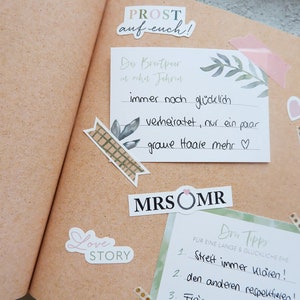 PROST
auf euch!
Das Brautpaar
in zehn Jahren
immer noch glücklich
verheiratet, nur ein paar
graue Haare mehr ♡
MRS MR
Love
STORY
Drei Tipps
FÜR EINE LANGE & GLÜCKLICHE EHE
1. Streit immer klären!
2. den anderen respektieren!
3.